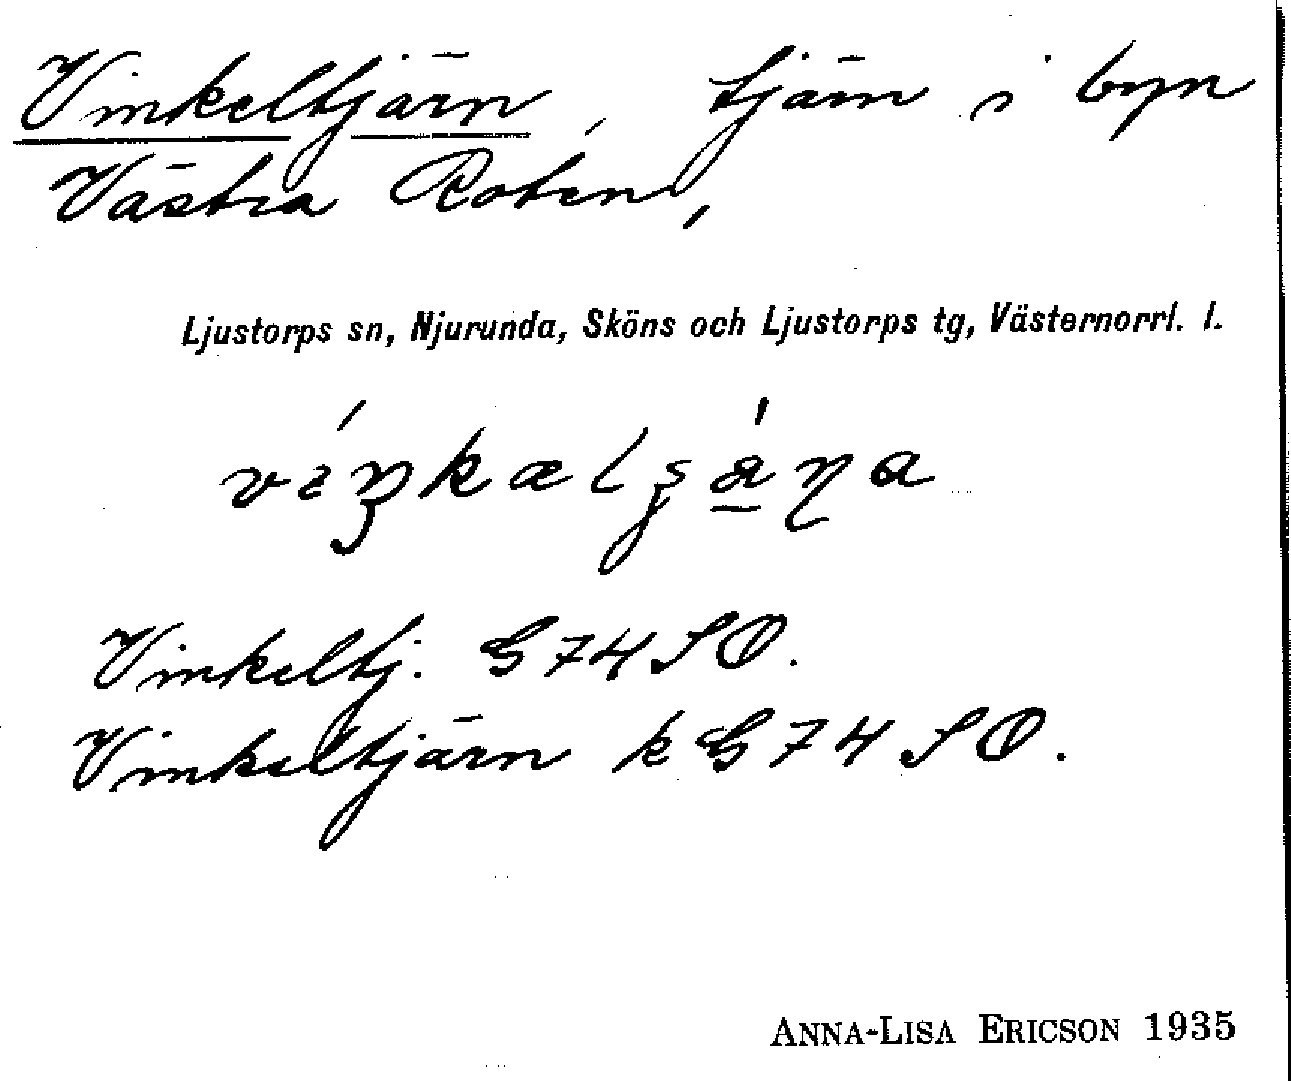 Vinkeltjärn, tjärn i byn
Västra Roten,
Ljustorps sn, Njurunda, Sköns och Ljustorps tg, Västernorrl. l.
Vinkeltj. G 74 SO.
Vinkeltjärn k G 74 SO.
ANNA-LISA ERICSON 1935